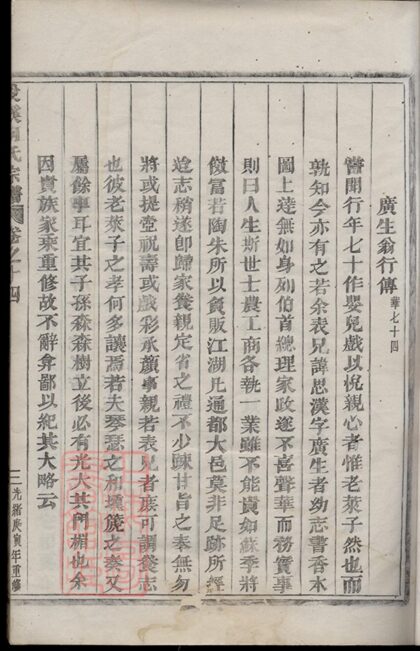 廣生翁行傳 華七十四
嘗聞行年七十作嬰兒戲以悅親心者惟老萊子然也而
孰知今亦有之若余表兄諱思漢字廣生者幼志書香水
圖上達無如身列伯首總理家政遂不喜聲華而務實事
則曰人生斯世士農工商各執一業雖不能貴如蘇季將
傚富若陶朱所以負販江湖凡通都大邑莫非足跡所經
迨志稍遂卽歸家養親定省之禮不少踈甘旨之奉無勿
將或提壺祝壽或戲彩承顏事親若表兄者庶可謂養志
也彼老萊子之孝何多讓焉若夫琴瑟之和壎箎之奏又
屬餘事耳宜其子孫森森樹立後必有光大其門楣也余
因貴族家乘重修故不辭弇鄙以紀其大略云
氏宗譜 卷之十四
二 光緒庚寅年重修